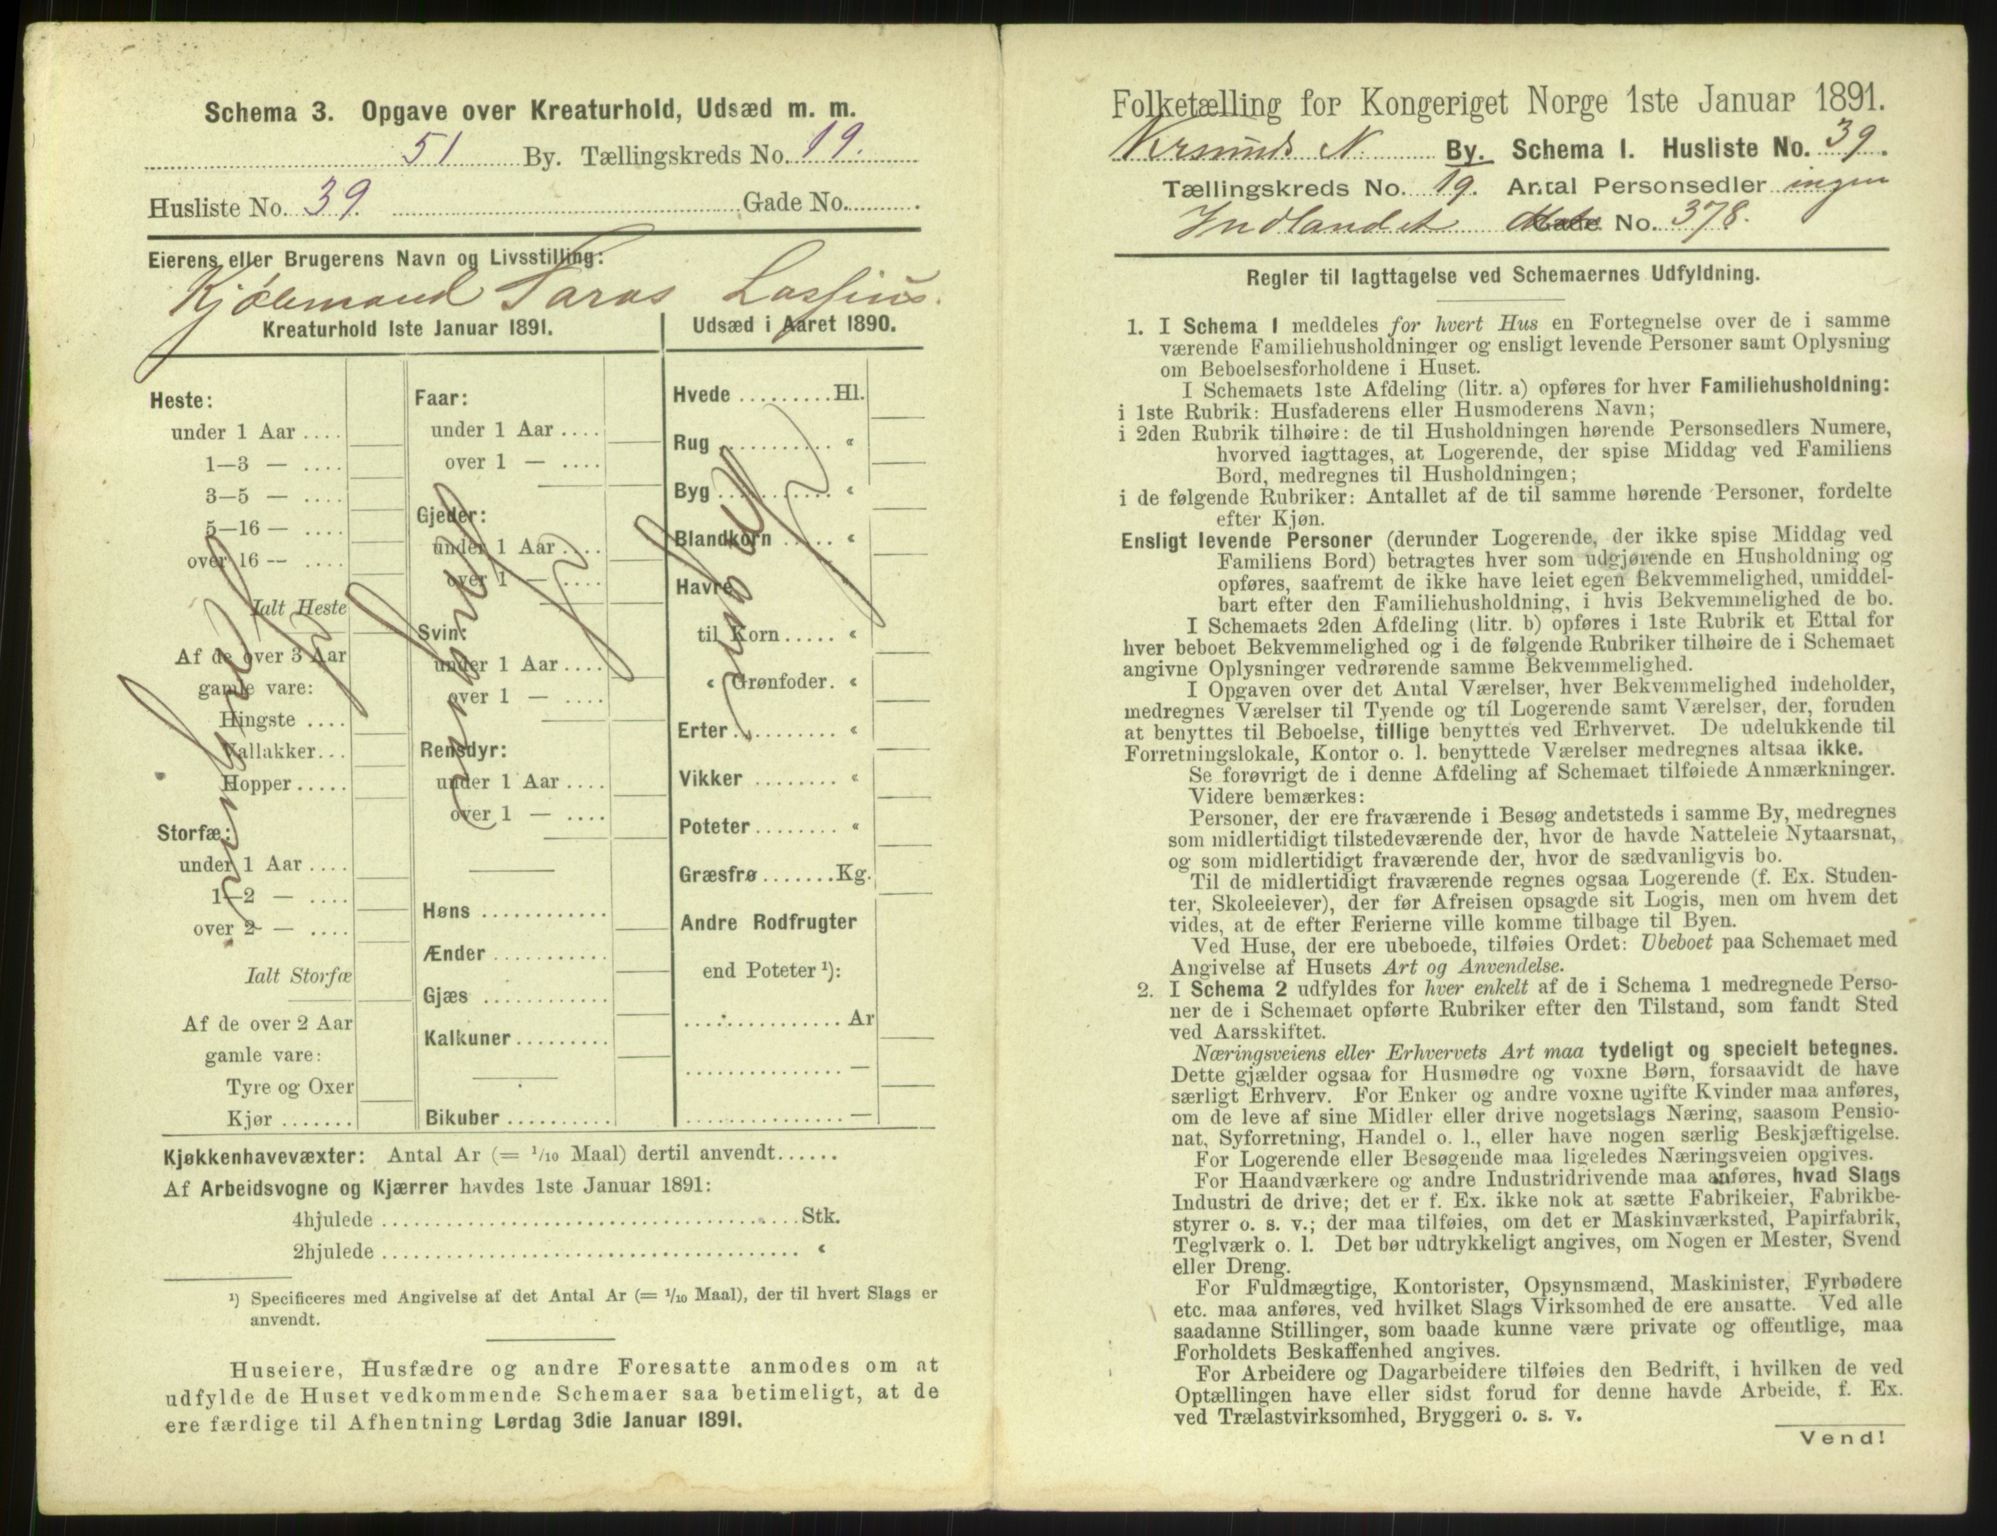 Schema 3. Opgave over Kreaturhold, Udsæd m. m.
51 By. Tællingskreds No. 19.
Husliste No. 39. Gade No.
Eierens eller Brugerens Navn og Livsstilling:
Kjöbmand
Kreaturhold 1ste Januar 1891.
Heste:
under 1 Aar
1—3 —
3—5 —
5—16 —
over 16 —
Ialt Heste
Af de over 3 Aar
gamle vare:
Hingste
Vallakker
Hopper
Storfæ:
under 1 Aar
1—2 —
over 2 —
Ialt Storfæ
Af de over 2 Aar
gamle vare:
Tyre og Oxer
Kjør
Faar:
under 1 Aar
over 1 —
Gjeder:
under 1 Aar
over 1 —
Svin:
under 1 Aar
over 1 —
Rensdyr:
under 1 Aar
over 1 —
Høns
Ænder
Gjæs
Kalkuner
Bikuber
Udsæd i Aaret 1890.
Hvede Hl.
Rug "
Byg "
Blandkorn "
Havre
til Korn "
" Grønfoder. "
Erter "
Vikker "
Poteter "
Græsfrø Kg.
Andre Rodfrugter
end Poteter ¹):
Ar
—
—
Kjøkkenhavevæxter: Antal Ar (= 1/10 Maal) dertil anvendt
Af Arbeidsvogne og Kjærrer havdes 1ste Januar 1891:
4hjulede Stk.
2hjulede "
¹) Specificeres med Angivelse af det Antal Ar (= 1/10 Maal), der til hvert Slags er
anvendt.
Huseiere, Husfædre og andre Foresatte anmodes om at
udfylde de Huset vedkommende Schemaer saa betimeligt, at de
ere færdige til Afhentning Lørdag 3die Januar 1891.
Folketælling for Kongeriget Norge 1ste Januar 1891.
Krsunds N. By. Schema I. Husliste No. 39.
Tællingskreds No. 19. Antal Personsedler ingen
Indlandet No. 378.
Regler til Iagttagelse ved Schemaernes Udfyldning.
1. I Schema 1 meddeles for hvert Hus en Fortegnelse over de i samme
værende Familiehusholdninger og ensligt levende Personer samt Oplysning
om Beboelsesforholdene i Huset.
I Schemaets 1ste Afdeling (litr. a) opføres for hver Familiehusholdning:
i 1ste Rubrik: Husfaderens eller Husmoderens Navn;
i 2den Rubrik tilhøire: de til Husholdningen hørende Personsedlers Numere,
hvorved iagttages, at Logerende, der spise Middag ved Familiens
Bord, medregnes til Husholdningen;
i de følgende Rubriker: Antallet af de til samme hørende Personer, fordelte
efter Kjøn.
Ensligt levende Personer (derunder Logerende, der ikke spise Middag ved
Familiens Bord) betragtes hver som udgjørende en Husholdning og
opføres, saafremt de ikke have leiet egen Bekvemmelighed, umiddel-
bart efter den Familiehusholdning, i hvis Bekvemmelighed de bo.
I Schemaets 2den Afdeling (litr. b) opføres i 1ste Rubrik et Ettal for
hver beboet Bekvemmelighed og i de følgende Rubriker tilhøire de i Schemaet
angivne Oplysninger vedrørende samme Bekvemmelighed.
I Opgaven over det Antal Værelser, hver Bekvemmelighed indeholder,
medregnes Værelser til Tyende og til Logerende samt Værelser, der, foruden
at benyttes til Beboelse, tillige benyttes ved Erhvervet. De udelukkende til
Forretningslokale, Kontor o. l. benyttede Værelser medregnes altsaa ikke.
Se forøvrigt de i denne Afdeling af Schemaet tilføiede Anmærkninger.
Videre bemærkes:
Personer, der ere fraværende i Besøg andetsteds i samme By, medregnes
som midlertidigt tilstedeværende der, hvor de havde Natteleie Nytaarsnat,
og som midlertidigt fraværende der, hvor de sædvanligvis bo.
Til de midlertidigt fraværende regnes ogsaa Logerende (f. Ex. Studen-
ter, Skoleelever), der før Afreisen opsagde sit Logis, men om hvem det
vides, at de efter Ferierne ville komme tilbage til Byen.
Ved Huse, der ere ubeboede, tilføies Ordet: Ubeboet paa Schemaet med
Angivelse af Husets Art og Anvendelse.
2. I Schema 2 udfyldes for hver enkelt af de i Schema 1 medregnede Perso-
ner de i Schemaet opførte Rubriker efter den Tilstand, som fandt Sted
ved Aarsskiftet.
Næringsveiens eller Erhvervets Art maa tydeligt og specielt betegnes.
Dette gjælder ogsaa for Husmødre og voxne Børn, forsaavidt de have
særligt Erhverv. For Enker og andre voxne ugifte Kvinder maa anføres,
om de leve af sine Midler eller drive nogetslags Næring, saasom Pensio-
nat, Syforretning, Handel o. l., eller have nogen særlig Beskjæftigelse.
For Logerende eller Besøgende maa ligeledes Næringsveien opgives.
For Haandværkere og andre Industridrivende maa anføres, hvad Slags
Industri de drive; det er f. Ex. ikke nok at sætte Fabrikeier, Fabrikbe-
styrer o. s. v.; der maa tilføies, om det er Maskinværksted, Papirfabrik,
Teglværk o. l. Det bør udtrykkeligt angives, om Nogen er Mester, Svend
eller Dreng.
For Fuldmægtige, Kontorister, Opsynsmænd, Maskinister, Fyrbødere
etc. maa anføres, ved hvilket Slags Virksomhed de ere ansatte. Ved alle
saadanne Stillinger, som baade kunne være private og offentlige, maa
Forholdets Beskaffenhed angives.
For Arbeidere og Dagarbeidere tilføies den Bedrift, i hvilken de ved
Optællingen have eller sidst forud for denne havde Arbeide, f. Ex.
ved Trælastvirksomhed, Bryggeri o. s. v.
Vend!